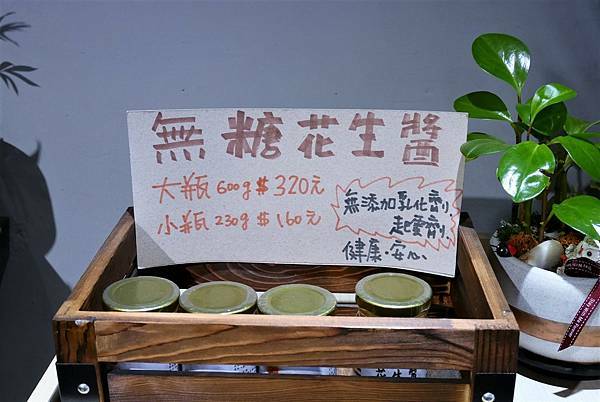 無糖花生醬
大瓶 600g $320元
小瓶 230g $160元
無添加乳化劑,
起雲劑,
健康·安心